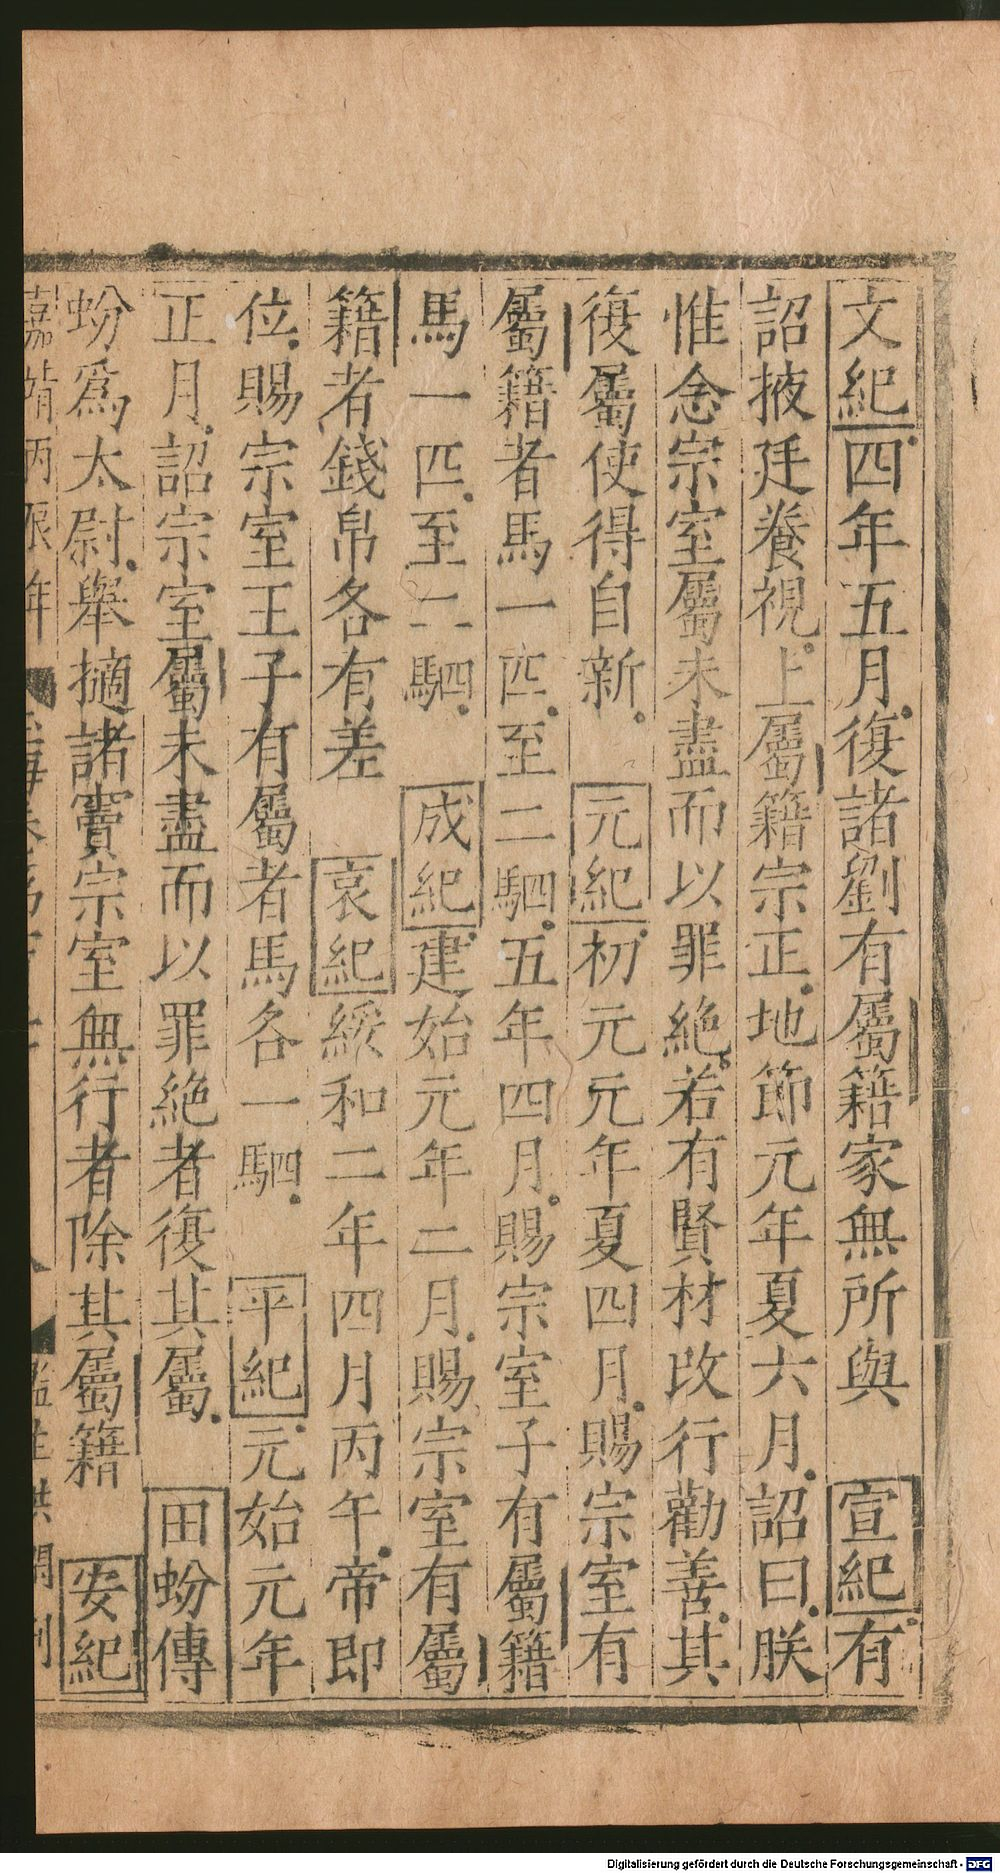 文紀四年五月復諸劉有屬籍家無所與　宣紀有
詔掖廷養視上屬籍宗正地節元年夏六月詔曰朕
惟念宗室屬未盡而以罪絶若有賢材改行勸善其
復屬使得自新　元紀初元元年夏四月賜宗室有
屬籍者馬一匹至二駟五年四月賜宗室子有屬籍
馬一匹至二駟　成紀建始元年二月賜宗室有屬
籍者錢帛各有差　哀紀綏和二年四月丙午帝即
位賜宗室王子有屬者馬各一駟　平紀元始元年
正月詔宗室屬未盡而以罪絶者復其屬　田蚡傳
蚡爲太尉舉擿諸竇宗室無行者除其屬籍　安紀
嘉靖丙辰年
Digitalisierung gefördert durch die Deutsche Forschungsgemeinschaft - DFG